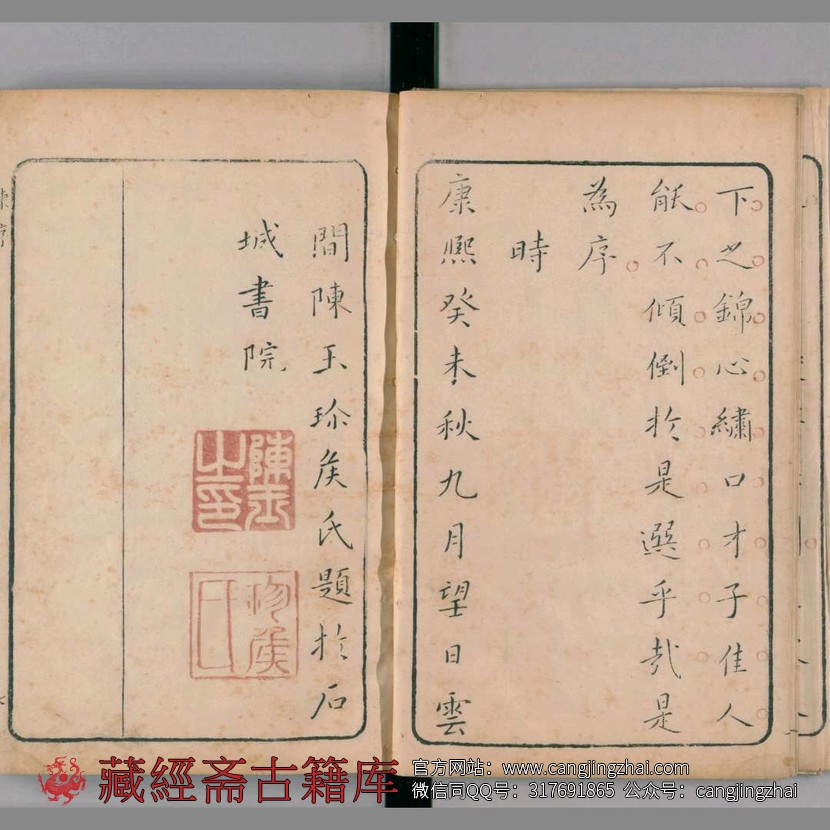 下之錦心繡口才子佳人
能不傾倒於是選乎哉是
為序
時
康熙癸未秋九月望日雲
間陳玉珎矦氏題於石
城書院
陳玉之印
珍矦氏
陳序
藏經斋古籍库
官方网站：www.cangjingzhai.com
微信同QQ号：317691865 公众号：cangjingzhai